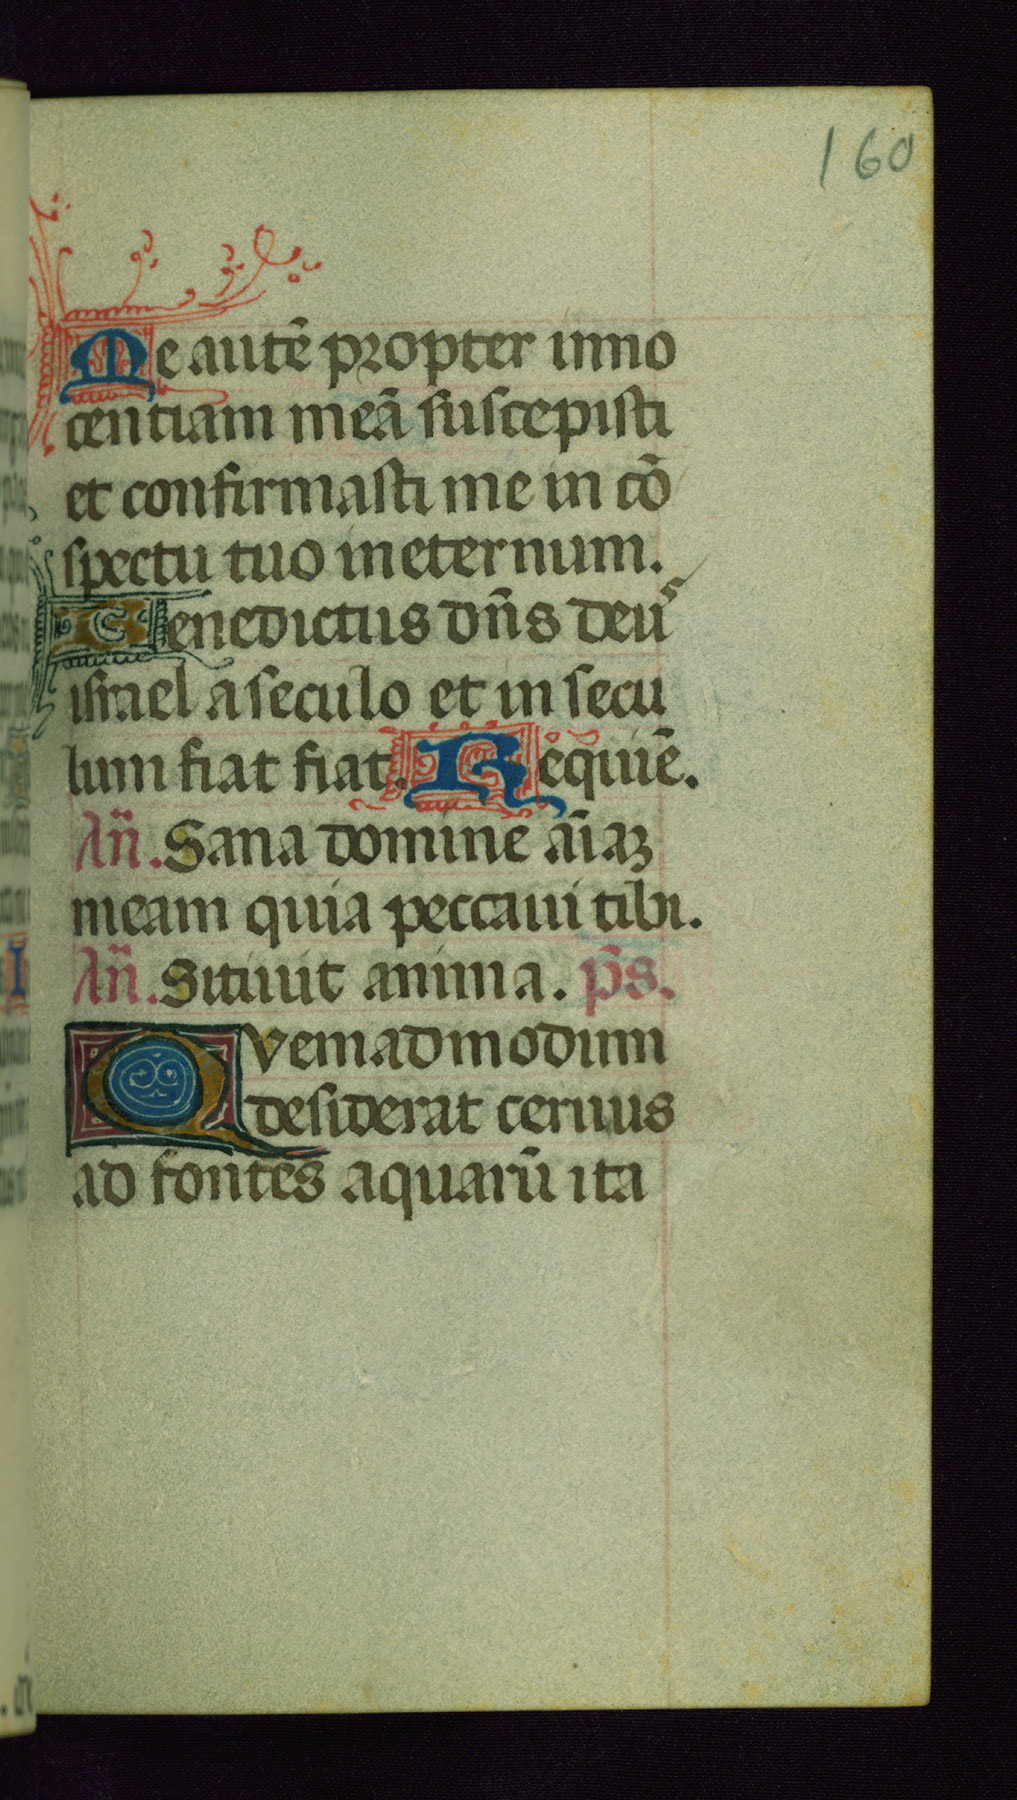 160
Me autē propter inno
centiam meā suscepisti
et confirmasti me in cō
spectu tuo in eternum.
Benedictus dn̄s deus
israel a seculo et in secu
lum fiat fiat. Requiē.
An̄. Sana domine aīaꝫ
meam quia peccaui tibi.
An̄. Sitiuit anima. p̄s.
Quemadmodum
desiderat ceruus
ad fontes aquarū ita